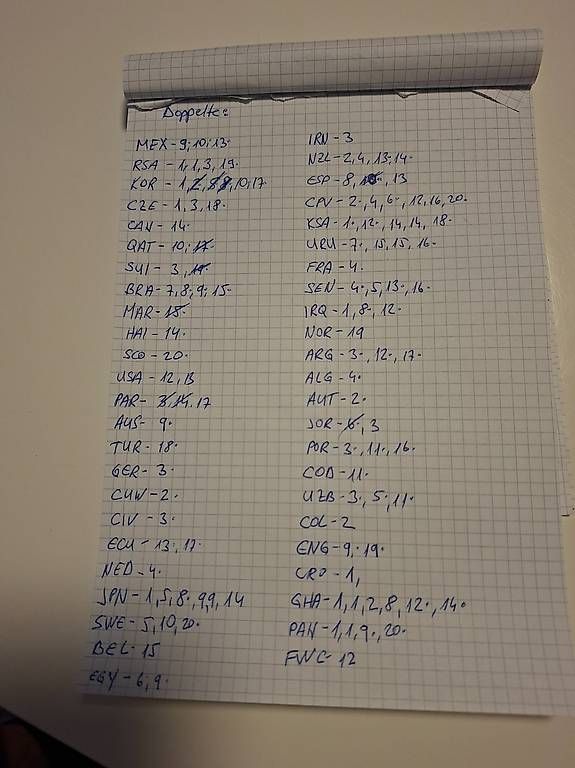 Doppelte:
MEX - 9, 10, 13
RSA - 1, 1, 3, 19
KOR - 1, 2, 8, 8, 10, 17
CZE - 1, 3, 18
CAN - 14
QAT - 10, 17
SUI - 3, 19
BRA - 7, 8, 9, 15
MAR - 18
HAI - 14
SCO - 20
USA - 12, 13
PAR - 3, 14, 17
AUS - 9
TUR - 18
GER - 3
CUW - 2
CIV - 3
ECU - 13, 17
NED - 4
JPN - 1, 5, 8, 9, 9, 14
SWE - 5, 10, 20
BEL - 15
EGY - 6, 9
IRN - 3
NZL - 2, 4, 13, 14
ESP - 8, 13
CPV - 2, 4, 6, 12, 16, 20
KSA - 1, 12, 14, 14, 18
URU - 7, 15, 15, 16
FRA - 4
SEN - 4, 5, 13, 16
IRQ - 1, 8, 12
NOR - 19
ARG - 3, 12, 17
ALG - 4
AUT - 2
JOR - 6, 3
POR - 3, 11, 16
COD - 11
UZB - 3, 5, 11
COL - 2
ENG - 9, 19
CRO - 1,
GHA - 1, 1, 2, 8, 12, 14
PAN - 1, 1, 9, 20
FWC - 12